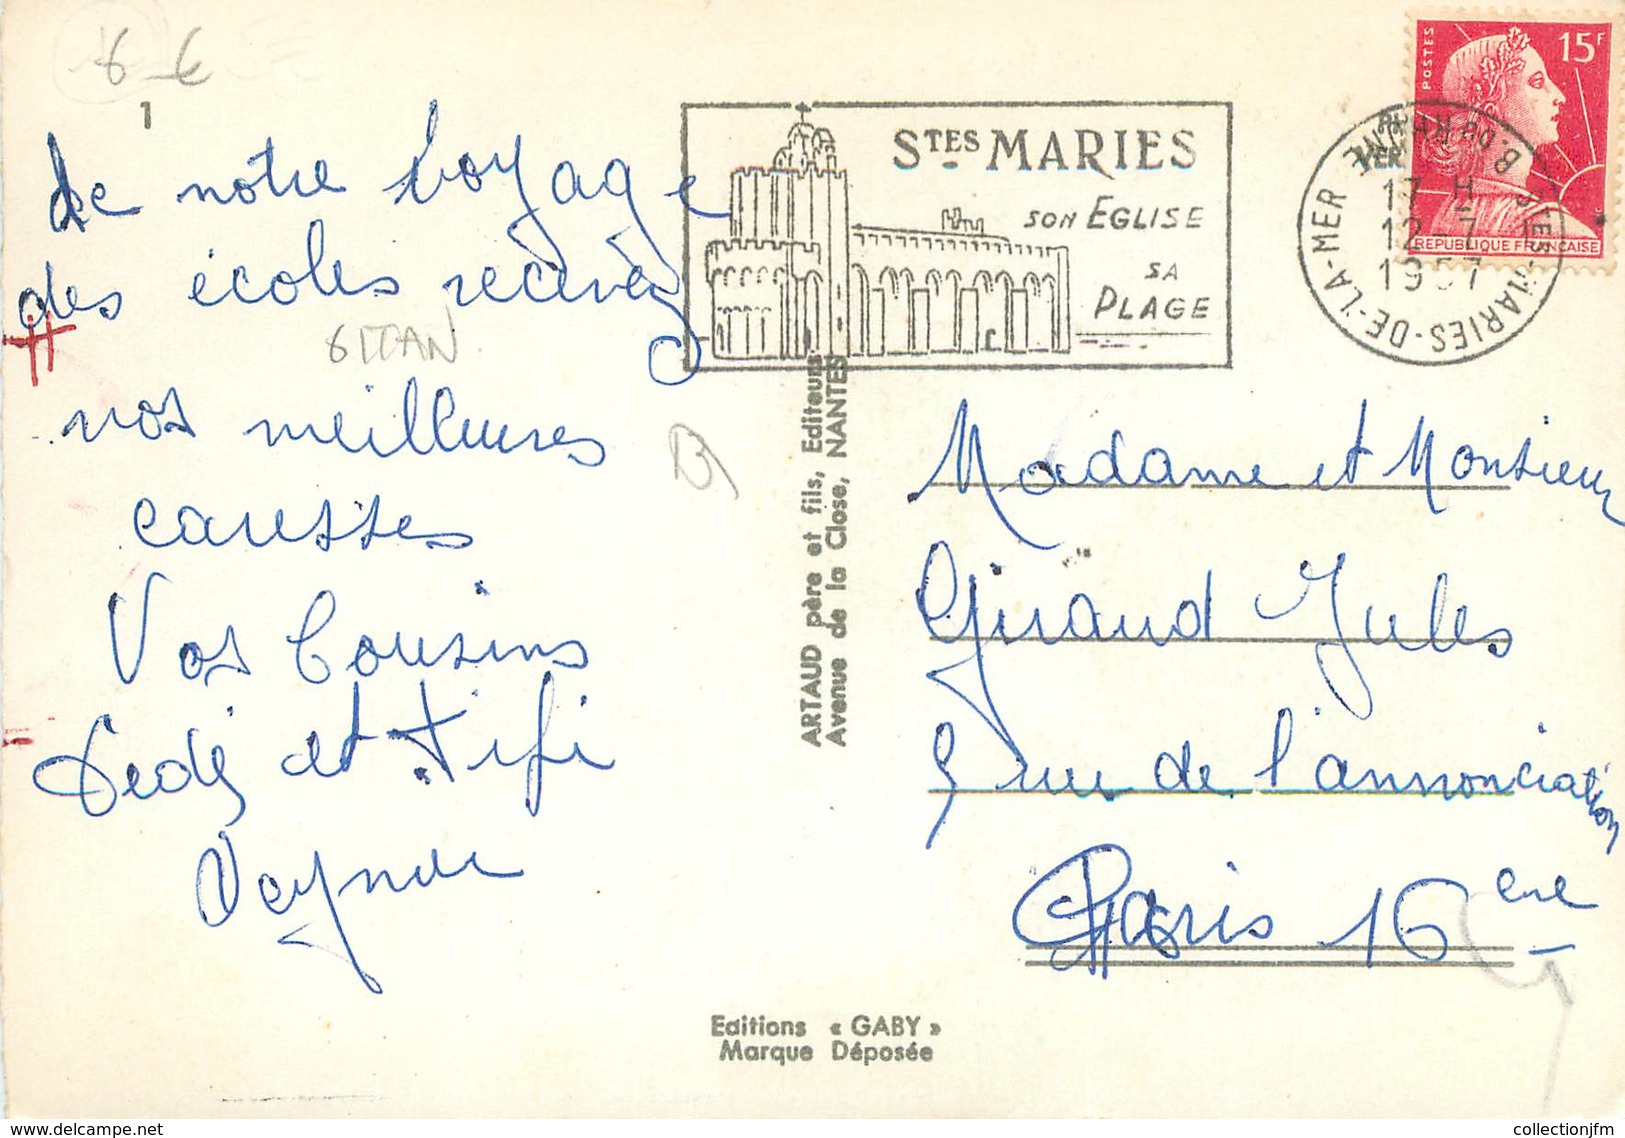 6 €
1
De notre voyage
des écoles recevez
GITAN
nos meilleures
caresses
Vos Cousins
Dédé et Fifi
STES MARIES
SON EGLISE
SA
PLAGE
POSTES
15F
REPUBLIQUE FRANÇAISE
STES-MARIES-DE-LA-MER
B. DU RHONE
17 H
12-7
1957
ARTAUD père et fils, Editeurs
Avenue de la Close, NANTES
Madame et Monsieur
Giraud Jules
5 rue de l'annonciation
Paris 16 eme
Editions « GABY »
Marque Déposée
www.delcampe.net
collectionjfm